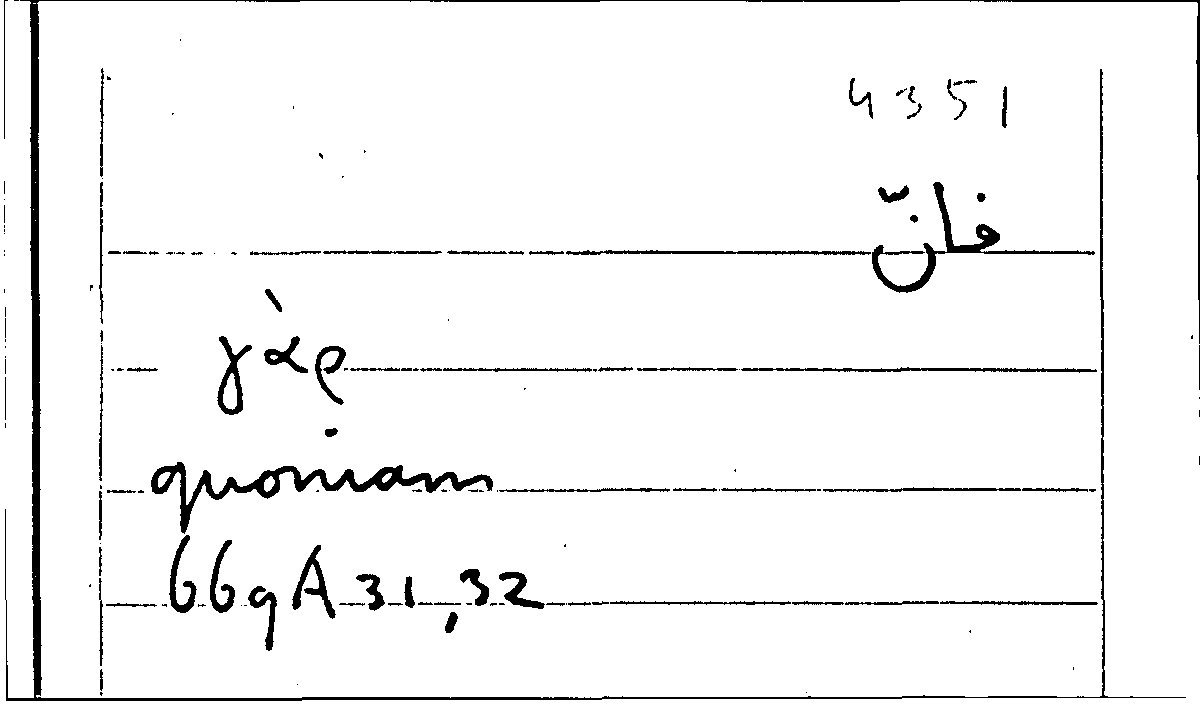 4351
فانّ
γὰρ
quoniam
669A31,32